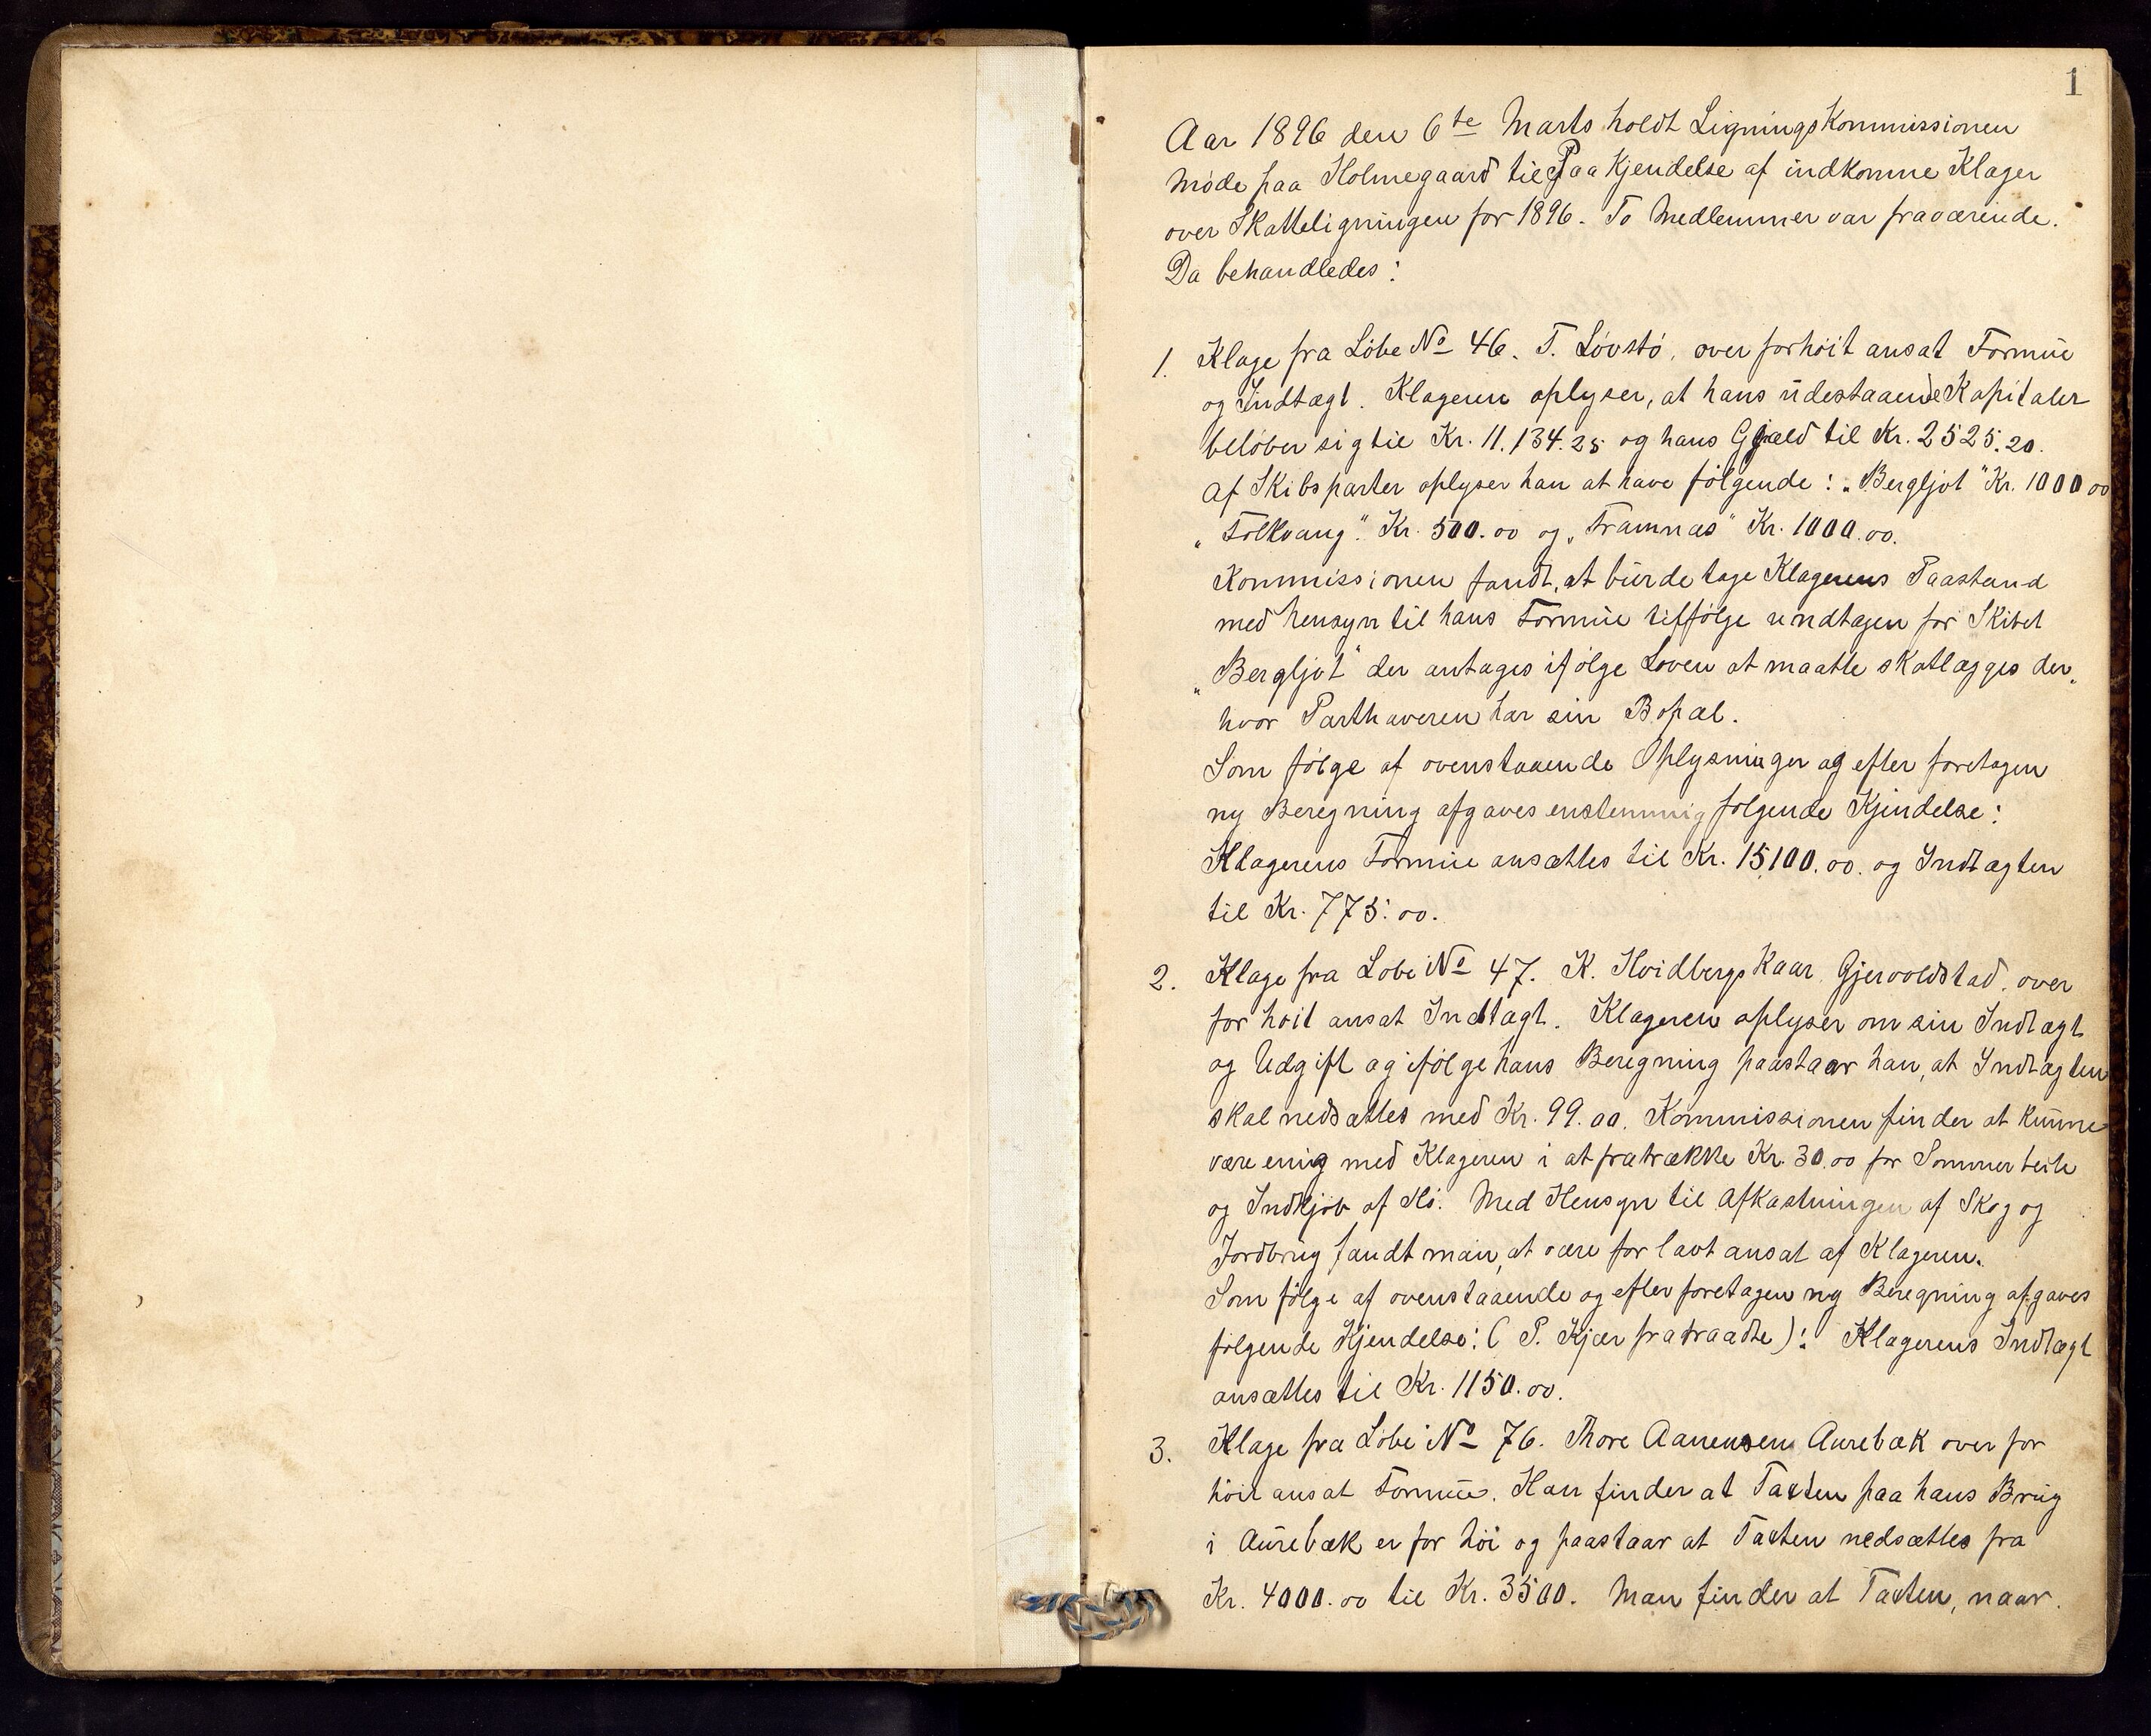 1
Aar 1896 den 6te Marts holdt LigningsKommissionen
Møde paa Holmegaard til PaaKjendelse af indkomne Klager
over Skatteligningen for 1896. To Medlemmer var fraværende.
Da behandledes:
1. Klage fra Løbe No 46. T. Løvstø, over forhøit ansat Formue
og Indtægt. Klageren oplyser, at hans udestaaende Kapitaler
beløber sig til Kr. 11.134.25 og hans Gjæld til Kr. 2525.20.
Af Skibsparter oplyser han at have følgende: „Bergljot" Kr. 1000 oo
„Folkvang". Kr. 500.oo og „Framnæs" Kr. 1000.oo.
Kommissionen fandt, at burde tage Klagerens Paastand
med hensyn til hans Formue tilfølge undtagen for Skibet
„Bergljot" der antages ifølge Loven at maatte skatlægges der„
hvor Parthaveren har sin Bopæl.
Som følge af ovenstaaende Oplysninger og efter foretagen
ny Beregning afgaves enstemmig følgende Kjendelse:
Klagerens Formue ansættes til Kr. 15,100.oo. og Indtægten
til Kr. 775.oo.
2. Klage fra Løbe No 47. K. HvidbergsKaar Gjervoldstad, over
for høit ansat Indtægt. Klageren oplyser om sin Indtægt
og Udgift og ifølge hans Beregning paastaar han, at Indtægten
skal nedsættes med Kr. 99.oo. Kommissionen finder at kunne
være enig med Klageren i at fratrække Kr. 30.oo for Sommerbeite
og Indkjøb af Hø. Med Hensyn til Afkastningen af Skog og
Jordbrug fandt man, at være for lavt ansat af Klageren.
Som følge af ovenstaaende og efter foretagen ny Beregning afgaves
følgende Kjendelse: (P. Kjær fratraadte): Klagerens Indtægt
ansættes til Kr. 1150.oo.
3. Klage fra Løbe No 76. Thore Aanensen Aurebæk over for
høit ansat Formue. Han finder at Taxten paa hans Brug
i Aurebæk er for høi og paastaar at Taxten nedsættes fra
Kr. 4000.oo til Kr. 3500. Man finder at Taxten, naar